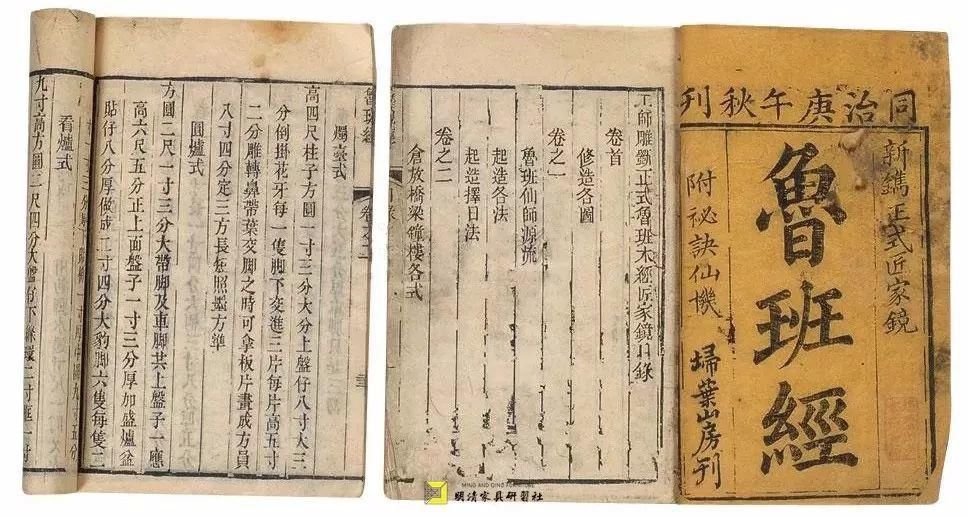 同治庚午秋刊
新鐫正式匠家鏡
魯班經
附祕訣仙機
埽葉山房刊
工師雕斲正式魯班木經匠家鏡目錄
卷首
修造各圖
卷之一
魯班仙師源流
起造各法
起造擇日法
卷之二
倉敖橋梁鐘樓各式
魯班經
燭臺式
高四尺柱子方圓一寸三分大分上盤仔八寸大三
分倒掛花牙每一隻脚下交進三片每片高五寸
二分雕轉鼻帶葉交脚之時可拿板片畫成方員
八寸四分定三方長短照墨方準
圓爐式
方圓二尺一寸三分大帶脚及車脚共上盤子一應
高六尺五分正上面盤子一寸三分厚加盛爐盆
貼仔八分厚做成二寸四分大豹脚六隻每隻二
看爐式
九寸高方圓二尺四分大盤仔下絛環二寸框一寸
MING AND QING FURNITURE
明清家具研習社